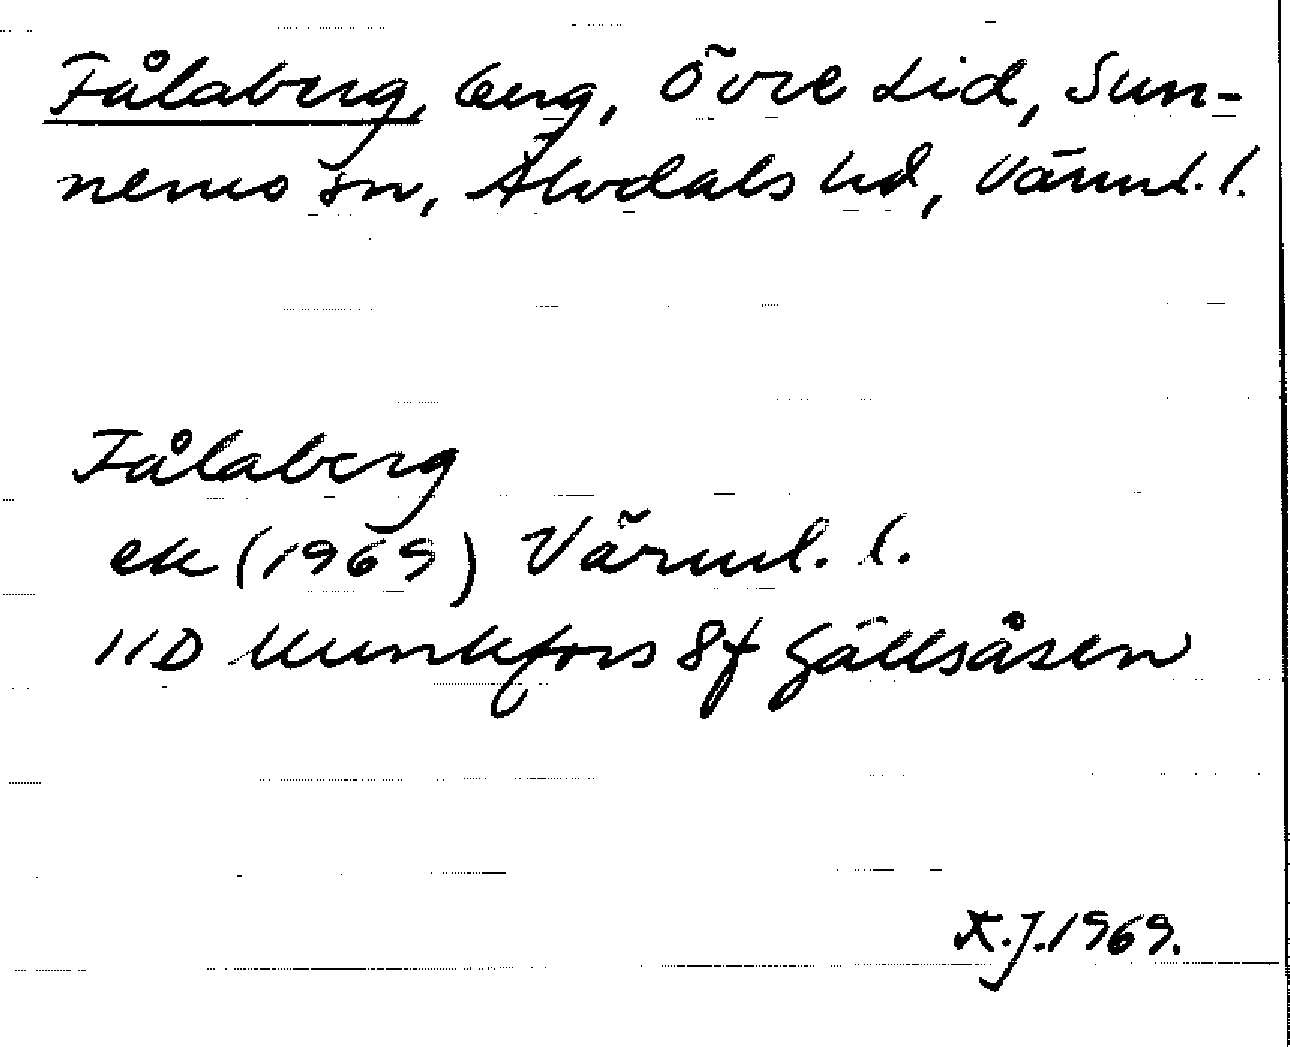 Fålaberg, berg, Övre Lid, Sun-
nemo sn, Älvdals hd, Värml. l.
Fålaberg
ek (1969) Värml. l.
11D Munkfors 8f Gällsåsen
K.J. 1969.